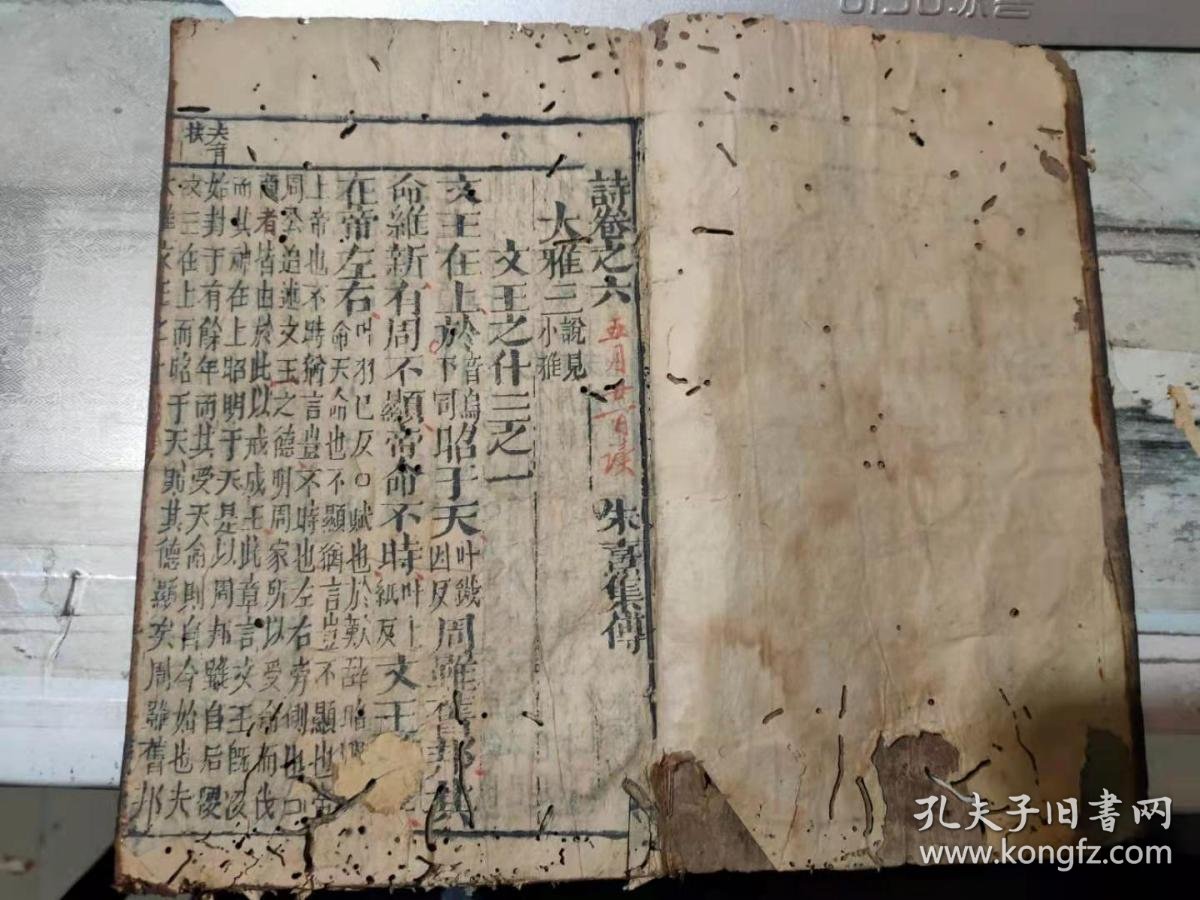 詩卷之六 五月廿一日讀 朱熹集傳
大雅三 說見小雅
文王之什三之一
文王在上於 音烏下同 昭于天 叶鐵因反 周雖舊邦其
命維新有周不顯帝命不時 叶上紙反 文王
在帝左右 叶羽已反○賦也於歎辭昭
命天命也不顯猶言豈不顯也帝
上帝也不時猶言豈不時也左右旁側也○
周公追述文王之德明周家所以受命而代
商者皆由於此以戒成王此章言文王既沒
而其神在上昭明于天是以周邦雖自后稷
始封千有餘年而其受天命則自今始也夫
文王在上而昭于天則其德顯矣周雖舊邦
夫音扶
孔夫子旧书网
www.kongfz.com